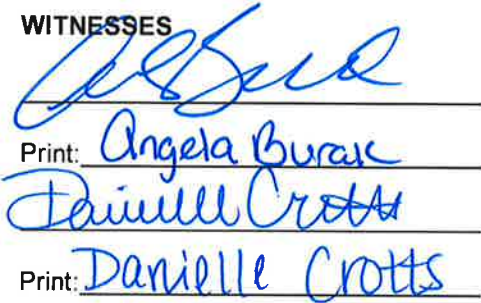 WITNESSES
Print: Angela Burak
Danielle Crotts
Print: Danielle Crotts